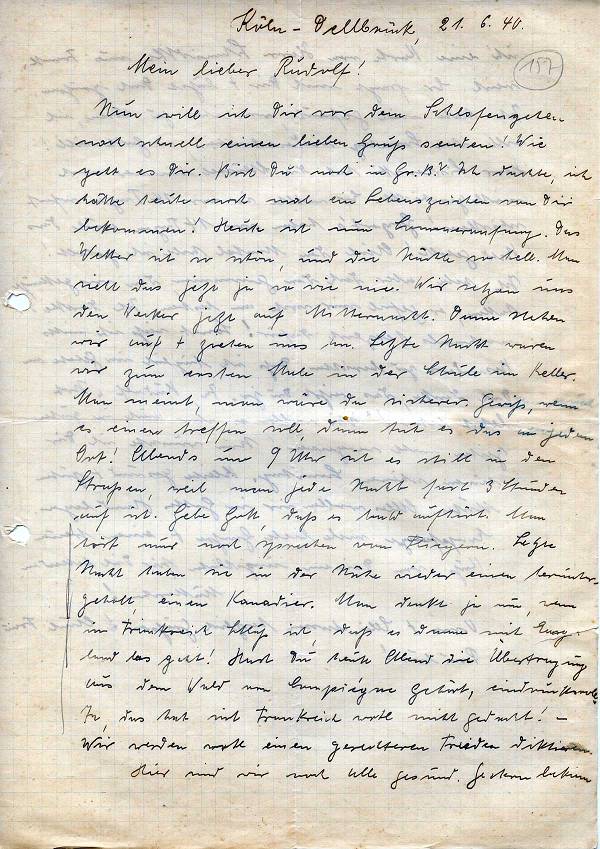 Köln-Dellbrück, 21. 6. 40.
157
Mein lieber Rudolf!
Nun will ich Dir vor dem Schlafengehen
noch schnell einen lieben Gruß senden! Wie
geht es Dir. Bist Du noch in Gr. B.? Ich dachte, ich
hätte heute noch mal ein Lebenszeichen von Dir
bekommen! Heute ist nun Sommeranfang. Das
Wetter ist so schön, und die Nächte so hell. Man
sieht das jetzt ja so wie nie. Wir setzen uns
den Wecker jetzt auf Mitternacht. Dann stehen
wir auf + ziehen uns an. Letzte Nacht waren
wir zum ersten Male in der Schule im Keller.
Man meint, man wäre da sicherer. Gewiß, wenn
es einen treffen soll, dann tut es das an jedem
Ort! Abends um 9 Uhr ist es still in den
Straßen, weil man jede Nacht fast 3 Stunden
auf ist. Gebe Gott, daß es bald aufhört. Man
hört nur noch sprechen von Fliegern. Letzte
Nacht haben sie in der Nähe wieder einen herunter-
geholt, einen Kanadier. Man denkt ja nun, wenn
in Frankreich Schluß ist, daß es dann mit Eng-
land los geht! Hast Du heute Abend die Übertragung
aus dem Wald von Compiègne gehört, eindrucksvoll.
Ja, das hat sich Frankreich wohl nicht gedacht! –
Wir werden wohl einen gerechteren Frieden diktieren.
Hier sind wir noch alle gesund. Gestern bekam